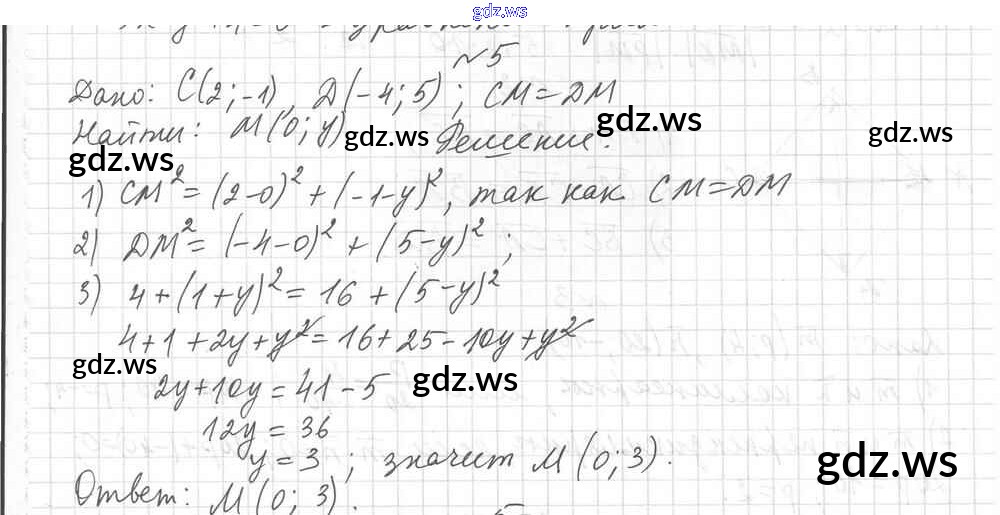 gdz.ws
№5
Дано: C(2; -1), D(-4; 5); CM = DM
Найти: M(0; y)
gdz.ws
Решение:
gdz.ws
gdz.ws
gdz.ws
1) CM² = (2-0)² + (-1-y)², так как CM = DM
2) DM² = (-4-0)² + (5-y)²;
3) 4 + (1+y)² = 16 + (5-y)²
4+1+2y+y² = 16+25-10y+y²
gdz.ws
2y+10y = 41-5
gdz.ws
12y = 36
y = 3; значит M(0; 3).
gdz.ws
Ответ: M(0; 3).